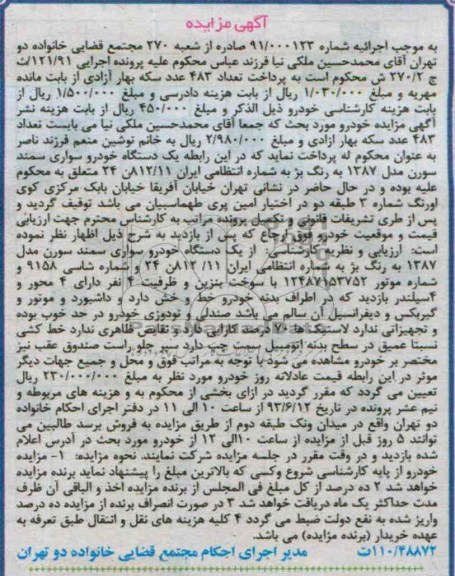 آگهی مزایده
به موجب اجرائیه شماره ۹۱/۰۰۰۱۲۳ صادره از شعبه ۲۷۰ مجتمع قضایی خانواده دو
تهران آقای محمدحسین ملکی نیا فرزند عباس محکوم علیه پرونده اجرایی ۱۲۱/۹۱/ث
ج ۲۷۰/۲ ش محکوم است به پرداخت تعداد ۴۸۳ عدد سکه بهار آزادی از بابت مانده
مهریه و مبلغ ۱/۰۳۰/۰۰۰ ریال از بابت هزینه دادرسی و مبلغ ۱/۵۰۰/۰۰۰ ریال از
بابت هزینه کارشناسی خودرو ذیل الذکر و مبلغ ۴۵۰/۰۰۰ ریال از بابت هزینه نشر
آگهی مزایده خودرو مورد بحث که جمعا آقای محمدحسین ملکی نیا می بایست تعداد
۴۸۳ عدد سکه بهار ازادی و مبلغ ۲/۹۸۰/۰۰۰ ریال به خانم نوشین منعم فرزند ناصر
به عنوان محکوم له پرداخت نماید که در این رابطه یک دستگاه خودرو سواری سمند
سورن مدل ۱۳۸۷ به رنگ بژ به شماره انتظامی ایران ۸۱۲/۱۱ن ۲۴ متعلق به محکوم
علیه بوده و در حال حاضر در نشانی تهران خیابان آفریقا خیابان بابک مرکزی کوی
اورنگ شماره ۳ طبقه دو در اختیار امین پری طهماسبیان می باشد توقیف گردید و
پس از طری تشریفات قانونی و تکمیل پرونده مراتب به کارشناس محترم جهت ارزیابی
قیمت و موقعیت خودرو فوق ارجاع که پس از بازدید به شرح ذیل اظهار نظر نموده
است: ارزیابی و نظریه کارشناسی: از یک دستگاه خودرو سواری سمند سورن مدل
۱۳۸۷ به رنگ بژ به شماره انتظامی ایران ۱۱/ ۸۱۲ن ۲۴ و شماره شاسی ۹۱۵۸ و
شماره موتور ۱۲۴۸۷۱۵۳۷۵۲ با سوخت بنزین و ظرفیت ۴ نفر دارای ۴ محور و
۴سیلندر بازدید که در اطراف بدنه خودرو خط و خش دارد و داشبورد و موتور و
گیربکس و دیفرانسیل آن سالم می باشد صندلی و تودوزی خودرو در حد خوب بوده
و تجهیزاتی ندارد لاستیک ها ۷۰ درصد کارایی دارد و نقایص ظاهری ندارد خط کشی
نسبتا عمیق در سطح بدنه اتومبیل سمت چپ دارد سپر جلو راست صندوق عقب نیز
مختصر بر خودرو مشاهده می شود با توجه به مراتب فوق و محل و جمیع جهات دیگر
موثر در این رابطه قیمت عادلانه روز خودرو مورد نظر به مبلغ ۲۳۰/۰۰۰/۰۰۰ ریال
تعیین می گردد که مقرر گردید در ازای بخشی از محکوم به و هزینه های مربوطه و
نیم عشر پرونده در تاریخ ۹۳/۶/۱۲ از ساعت ۱۰ الی ۱۱ در دفتر اجرای احکام خانواده
دو تهران واقع در میدان ونک طبقه دوم از طریق مزایده به فروش برسد طالبین می
توانند ۵ روز قبل از مزایده از ساعت ۱۰الی ۱۲ از خودرو مورد بحث در آدرس اعلام
شده بازدید و در وقت مقرر در جلسه مزایده شرکت نمایند. نحوه مزایده: ۱- مزایده
خودرو از پایه کارشناسی شروع وکسی که بالاترین مبلغ را پیشنهاد نماید برنده مزایده
خواهد شد ۲ ده درصد از کل مبلغ فی المجلس از برنده مزایده اخذ و الباقی آن ظرف
مدت حداکثر یک ماه دریافت خواهد شد ۳ در صورت انصراف برنده از مزایده ده درصد
واریز شده به نفع دولت ضبط می گردد ۴ کلیه هزینه های نقل و انتقال طبق تعرفه به
عهده خریدار (برنده مزایده) می باشد.
۱۱۰/۴۸۸۷۲ت مدیر اجرای احکام مجتمع قضایی خانواده دو تهران